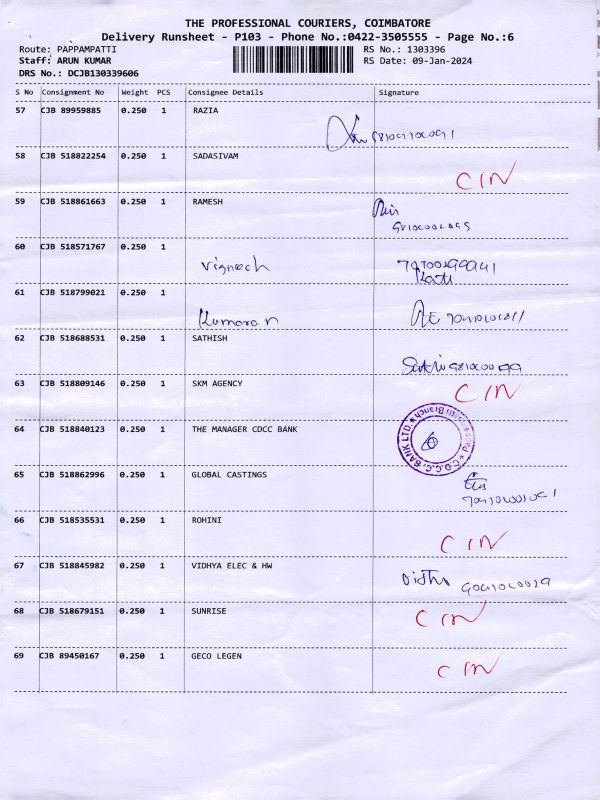 THE PROFESSIONAL COURIERS, COIMBATORE
Delivery Runsheet - P103 - Phone No.:0422-3505555 - Page No.:6
Route: PAPPAMPATTI RS No.: 1303396
Staff: ARUN KUMAR RS Date: 09-Jan-2024
DRS No.: DCJB130339606
S No Consignment No Weight PCS Consignee Details Signature
57 CJB 89959885 0.250 1 RAZIA
58 CJB 518822254 0.250 1 SADASIVAM
CIN
59 CJB 518861663 0.250 1 RAMESH
60 CJB 518571767 0.250 1
Vignesh
61 CJB 518799021 0.250 1
Kumaran
62 CJB 518688531 0.250 1 SATHISH
63 CJB 518809146 0.250 1 SKM AGENCY
CIN
64 CJB 518840123 0.250 1 THE MANAGER CDCC BANK
C.D.C.C. BANK LTD. Branch
65 CJB 518862996 0.250 1 GLOBAL CASTINGS
66 CJB 518535531 0.250 1 ROHINI
CIN
67 CJB 518845982 0.250 1 VIDHYA ELEC & HW
68 CJB 518679151 0.250 1 SUNRISE
CIN
69 CJB 89450167 0.250 1 GECO LEGEN
CIN